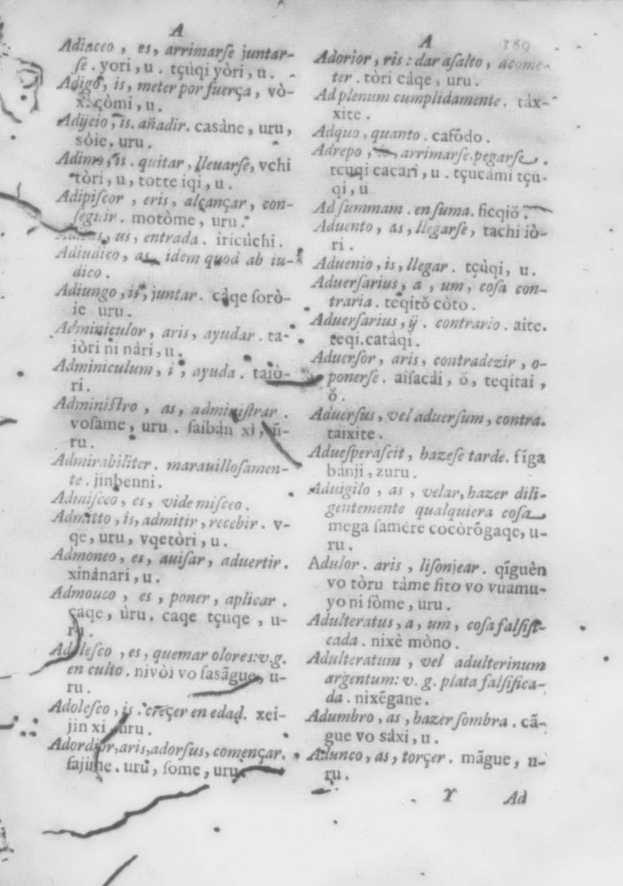 A
Adiaceo, es, arrimarſe juntar-
ſe. yori, u. tçùqi yòri, u.
Adigo, is, meter por fuerça, vò-
xi còmi, u.
Adijcio, is. añadir. casàne, uru,
sòie, uru.
Adimo, is. quitar, lleuarſe, vchi
tòri, u, totte iqi, u.
Adipiſcor, eris, alçançar, con-
ſeguir. motòme, uru.
us, entrada. iricùchi.
Adiudico, as, idem quod ab iu-
dico.
Adiungo, is, juntar. càqe ſorò-
ie uru.
Adminiculor, aris, ayudar. ta-
iòri ni nàri, u.
Adminiculum, i, ayuda. taiò-
ri.
Adminiſtro, as, adminiſtrar.
voſame, uru. ſaibàn xi, ũ-
ru.
Admirabiliter. marauilloſamen-
te. jinbenni.
Admiſceo, es, vide miſceo.
Admitto, is, admitir, recebir. v-
qe, uru, vqetòri, u.
Admoneo, es, auiſar, aduertir.
xinànari, u.
Admouco, es, poner, aplicar.
caqe, ùru. caqe tçuqe, u-
ru.
Adoleſco, es, quemar olores: v.g.
en culto. nivòi vo faſàgue, u-
ru.
Adoleſco, is. creçer en edad. xei-
jin xi, uru.
Adordior, aris, adorſus, començar.
fajime. uru, ſome, uru.
A 169
Adorior, ris: dar aſalto, acome-
ter. tòri càqe, uru.
Ad plenum cumplidamente. tàx-
xite.
Adquo, quanto. cafõdo.
Adrepo, arrimarſe. pegarſe.
tçuqi cacari, u. tçucàmi tçu-
qi, u
Ad ſummam. en ſuma. ficqiõ.
Aduento, as, llegarſe, tachi iò-
ri.
Aduenio, is, llegar. tçùqi, u.
Aduerſarius, a, um, coſa con-
traria. teqitõ còto.
Aduerſarius, ÿ. contrario. aite.
teqi. catàqi.
Aduerſor, aris, contradezir, o-
ponerſe. aiſacài, õ, teqitai,
õ.
Aduerſus, vel aduerſum, contra.
taixite.
Adueſperaſcit, hazeſe tarde. fíga
bànji, zuru.
Aduigilo, as, velar, hazer dili-
gentemente qualquiera coſa
mega ſamère cocòrõgaqe, u-
ru.
Adulor. aris, liſonjear. qĩguèn
vo tòru tàme fito vo vuamu-
yo ni ſòme, uru.
Adulteratus, a, um, coſa falſifi-
cada. nixè mòno.
Adulteratum, vel adulterinum
argentum: v. g. plata falſifica-
da. nixēgane.
Adumbro, as, hazer ſombra. cã-
gue vo sàxi, u.
Adunco, as, torçer. mãgue, u-
ru.
Y Ad